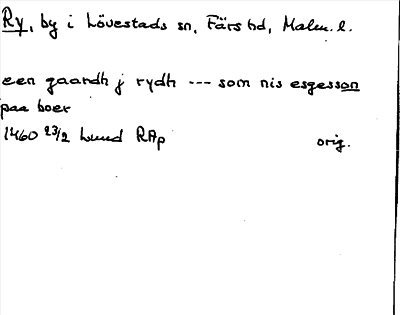 Ry, by i Lövestads sn, Färs hd, Malm. l.
een gaardh j rydh --- som nis esgesson
paa boer
1460 23/2 Lund RAp orig.